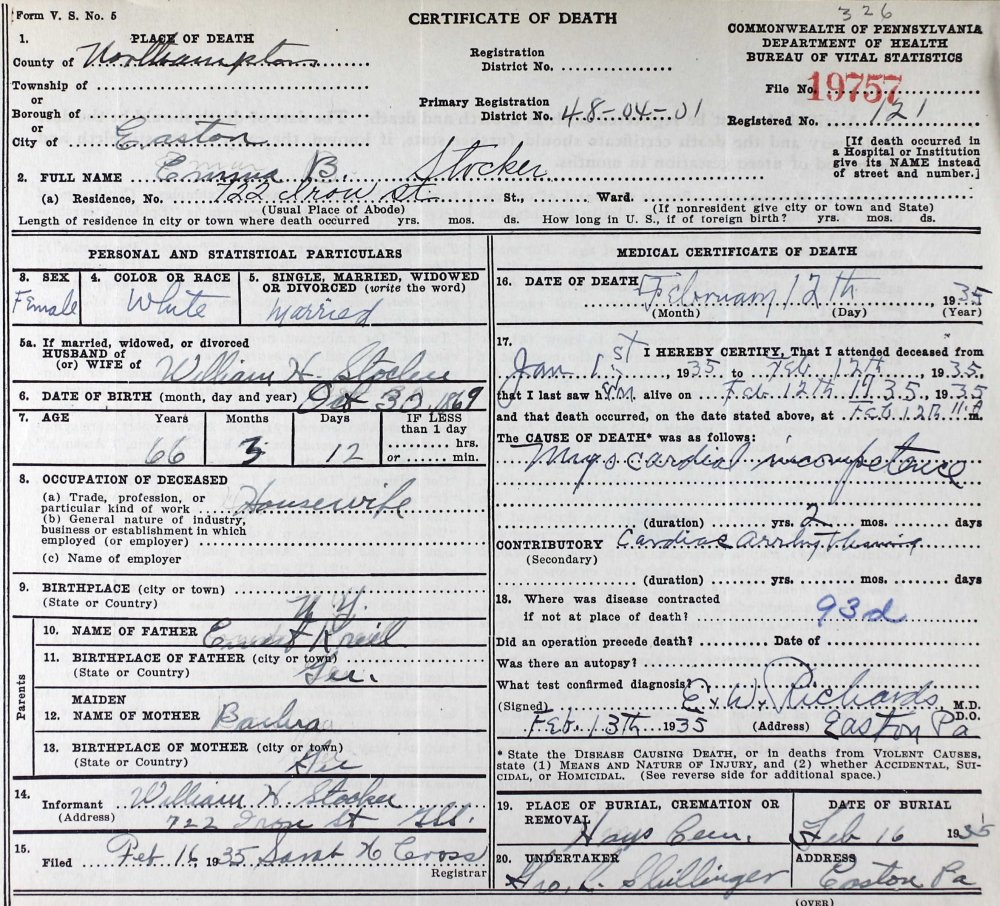 Form V. S. No. 5
CERTIFICATE OF DEATH
326
COMMONWEALTH OF PENNSYLVANIA
DEPARTMENT OF HEALTH
BUREAU OF VITAL STATISTICS
1. PLACE OF DEATH
County of Northampton
Registration District No.
File No. 19757
Township of
or
Borough of
Primary Registration District No. 48-04-01
Registered No. 121
or
City of Easton
[If death occurred in a Hospital or Institution give its NAME instead of street and number.]
2. FULL NAME Emma B. Stocker
(a) Residence, No. 722 Iron St. St., Ward.
(Usual Place of Abode) (If nonresident give city or town and State)
Length of residence in city or town where death occurred yrs. mos. ds. How long in U. S., if of foreign birth? yrs. mos. ds.
PERSONAL AND STATISTICAL PARTICULARS
3. SEX Female
4. COLOR OR RACE White
5. SINGLE, MARRIED, WIDOWED OR DIVORCED (write the word) Married
5a. If married, widowed, or divorced
HUSBAND of
(or) WIFE of William H. Stocker
6. DATE OF BIRTH (month, day and year) Oct 30 1869
7. AGE Years 66 Months 3 Days 12 IF LESS than 1 day hrs. or min.
8. OCCUPATION OF DECEASED
(a) Trade, profession, or particular kind of work Housewife
(b) General nature of industry, business or establishment in which employed (or employer)
(c) Name of employer
9. BIRTHPLACE (city or town)
(State or Country) N.Y.
Parents
10. NAME OF FATHER
11. BIRTHPLACE OF FATHER (city or town)
(State or Country) Ger.
12. MAIDEN NAME OF MOTHER Barbra
13. BIRTHPLACE OF MOTHER (city or town)
(State or Country) Ger
14. Informant William H. Stocker
(Address) 722 Iron St
15. Filed Feb. 16 1935 Sarah H Cross
Registrar
MEDICAL CERTIFICATE OF DEATH
16. DATE OF DEATH February 12th 1935
(Month) (Day) (Year)
17. I HEREBY CERTIFY, That I attended deceased from
Jan 1st, 1935 to Feb 12th, 1935,
that I last saw her alive on Feb 12th 1935, 1935
and that death occurred, on the date stated above, at Feb 12th 11
The CAUSE OF DEATH* was as follows:
Myocardial incompetence
(duration) yrs. 2 mos. days
CONTRIBUTORY Cardiac
(Secondary)
(duration) yrs. mos. days
18. Where was disease contracted
if not at place of death? 93d
Did an operation precede death? Date of
Was there an autopsy?
What test confirmed diagnosis?
(Signed) E. W. Richards, M.D. D.O.
Feb. 13th 1935 (Address) Easton Pa
* State the DISEASE CAUSING DEATH, or in deaths from VIOLENT CAUSES,
state (1) MEANS AND NATURE OF INJURY, and (2) whether ACCIDENTAL, SUI-
CIDAL, or HOMICIDAL. (See reverse side for additional space.)
19. PLACE OF BURIAL, CREMATION OR REMOVAL Hays Cem.
DATE OF BURIAL Feb 16 1935
20. UNDERTAKER Geo. L. Shillinger
ADDRESS Easton Pa
(OVER)